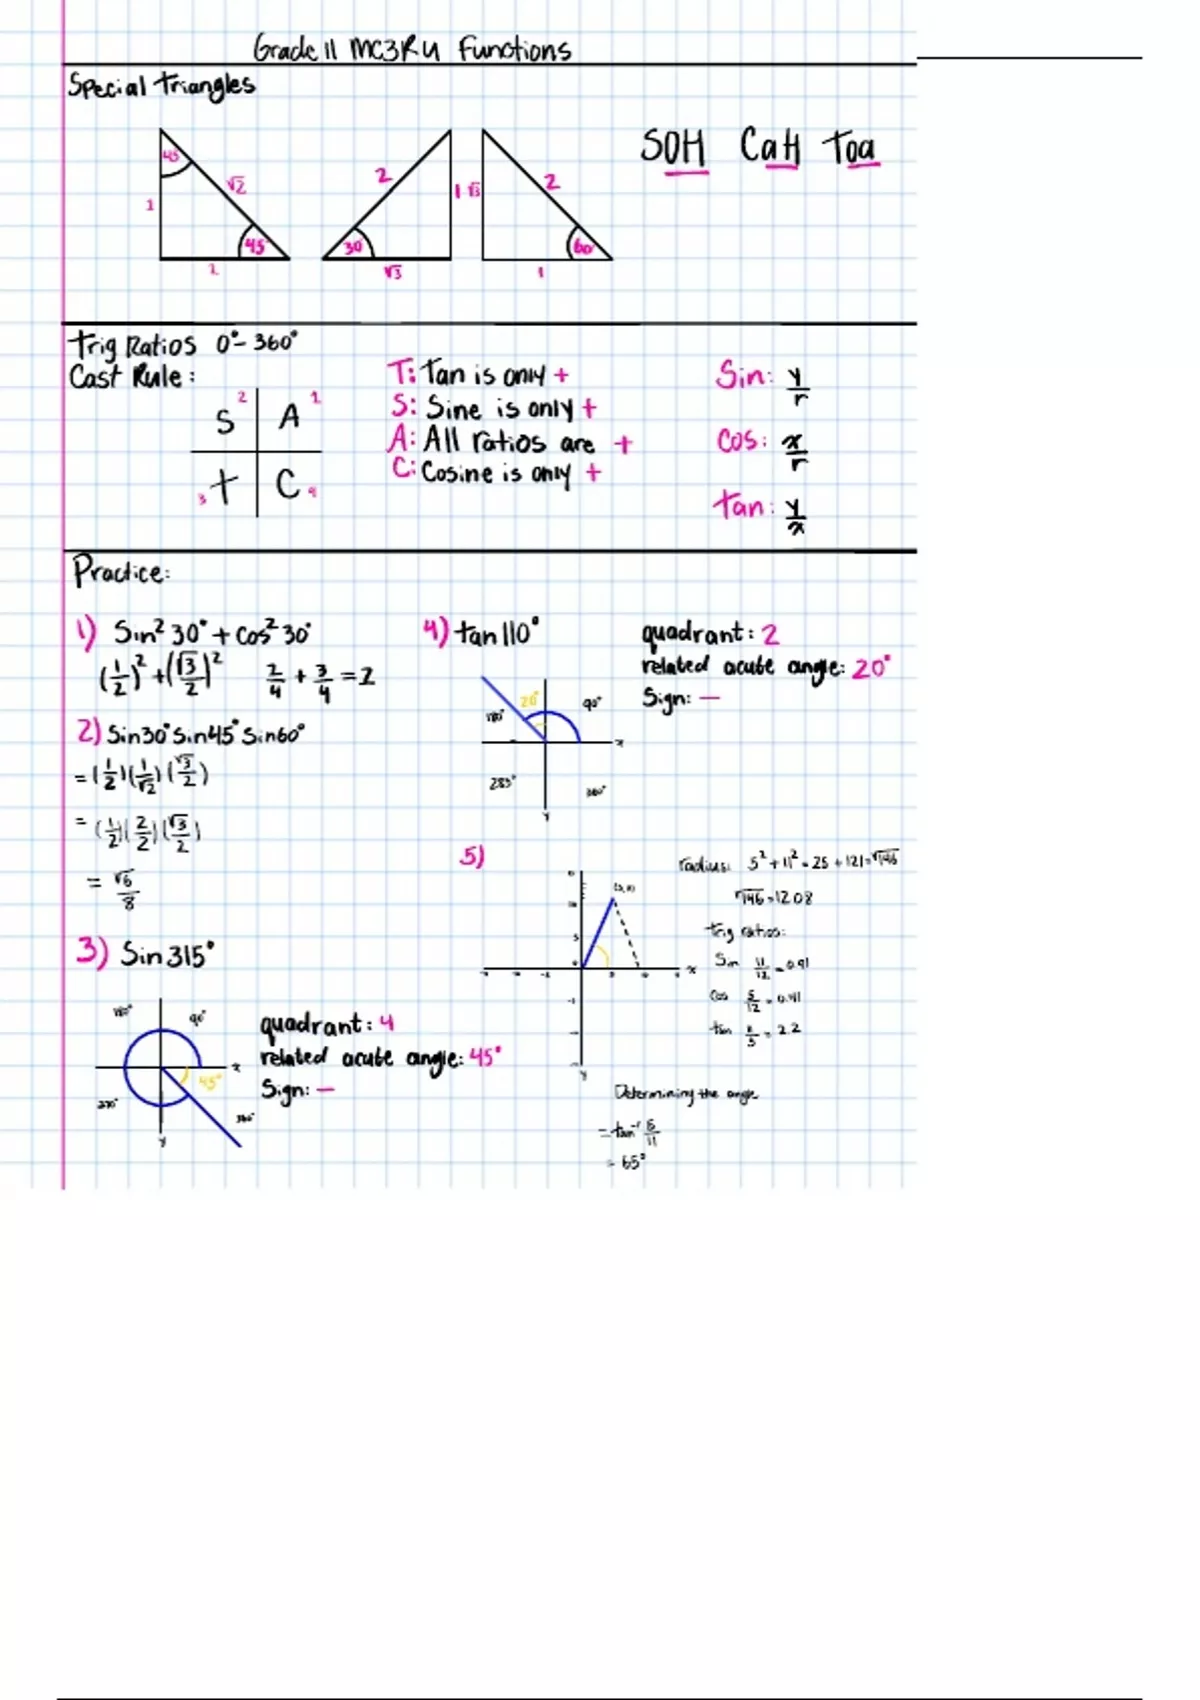 Grade 11 MC3RU Functions
Special Triangles
SOH CaH Toa
45 √2 1 45° 1
2 1 30° √3
√3 2 60° 1
Trig Ratios 0°-360°
Cast Rule:
S 2 A 1
3 T C 4
T: Tan is only +
S: Sine is only +
A: All ratios are +
C: Cosine is only +
Sin: y/r
Cos: x/r
tan: y/x
Practice:
1) Sin² 30° + Cos² 30°
(1/2)² + (√3/2)² 2/4 + 3/4 = 2
2) Sin30° Sin45° Sin60°
= (1/2)(1/√2)(√3/2)
= (1/2)(2/2)(√3/2)
= √6/8
3) Sin 315°
180° 90°
x
45°
270° 360°
y
quadrant: 4
related acute angle: 45°
Sign: —
4) tan 110°
20° 90°
180°
x
360°
y
quadrant: 2
related acute angle: 20°
Sign: —
5)
x
y
radius: 5² + 11² = 25 + 121 = √146
√146 = 12.08
Trig ratios:
Sin 11/12 = 0.91
Cos 5/12 = 0.41
tan = 2.2
Determining the angle
= tan⁻¹
= 65°